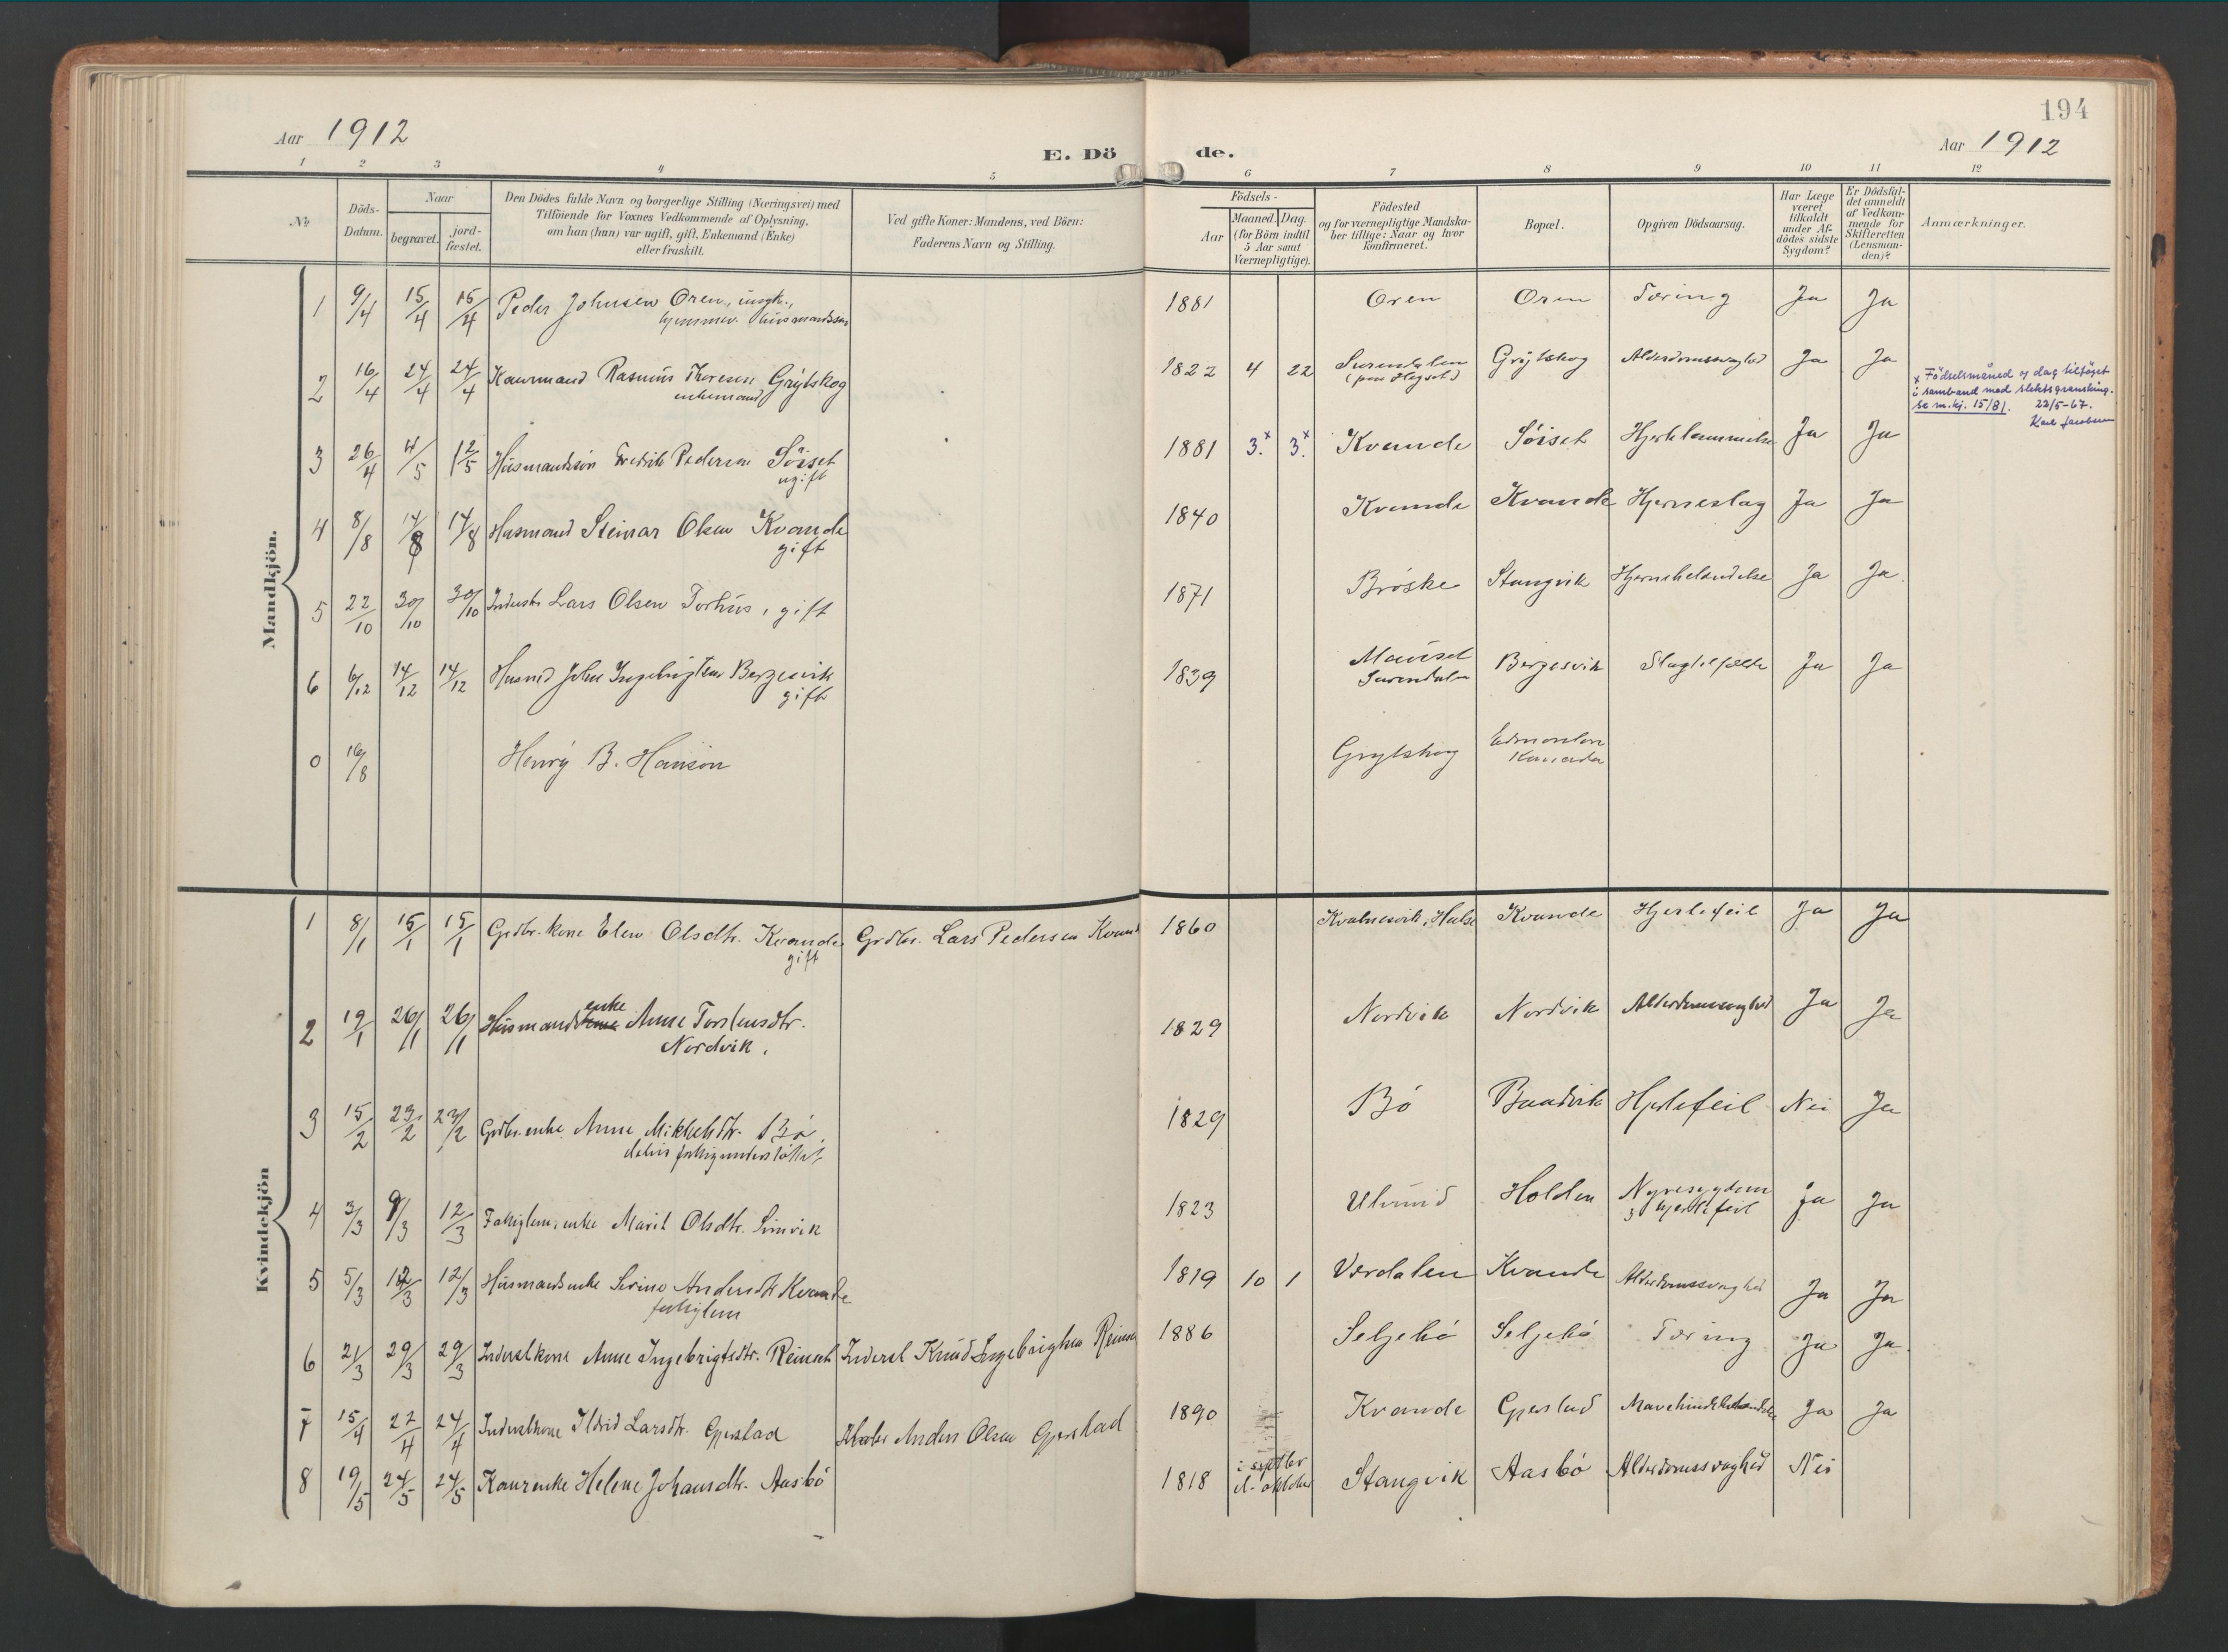 194
Aar 1912
E. Dö de.
Aar 1912
1 2 3 4 5 6 7 8 9 10 11 12
No
Döds-Datum.
Naar
begravet.
jord-fæstet.
Den Dödes fulde Navn og borgerlige Stilling (Næringsvei) med
Tilföiende for Voxnes Vedkommende af Oplysning,
om han (hun) var ugift, gift, Enkemand (Enke)
eller fraskilt.
Ved gifte Koner: Mandens, ved Börn:
Faderens Navn og Stilling.
Födsels-
Aar
Maaned. Dag.
(for Börn indtil
5 Aar samt
Værnepligtige).
Födested
og for værnepligtige Mandska-
ber tillige: Naar og hvor
konfirmeret.
Bopæl.
Opgiven Dödsaarsag.
Har Læge
været
tilkaldt
under Af-
dödes sidste
Sygdom?
Er Dödsfal-
det anmeldt
af Vedkom-
mende for
Skifteretten
(Lensman-
den)?
Anmærkninger.
Mandkjön.
1 9/4 15/4 15/4 Peder Johnsen Oren, ungk., 1881 Oren Oren Tæring Ja Ja
hjemmev. husmandssøn
2 16/4 24/4 24/4 Kaarmand Rasmus Thoresen Grytskog 1822 4 22 Surendalen Grytskog Alderdomssvaghed Ja Ja
enkemand
x Födselsmåned og dag tilföyet
i samband med slektsgransking.
se m.kj. 15/81. 22/5-67.
Karl Jacobsen
3 26/4 4/5 12/5 Husmandssøn Fredrik Pedersen Söiset 1881 3.x 3.x Kvande Söiset Hjertelammelse Ja Ja
ugift
4 8/8 14/8 14/8 Husmand Steinar Olsen Kvande 1840 Kvande Kvande Hjerneslag Ja Ja
gift
5 22/10 30/10 30/10 Inderst Lars Olsen Torhus, gift 1871 Brøske Stangvik Hjernebetændelse Ja Ja
6 6/12 14/12 14/12 Husmd John Ingebrigtsen Bergesvik 1839 Mauset Bergesvik Slagtilfælde Ja Ja
gift Surendalen
0 16/8 Henry B. Hanson Grytskog Edmonton
Kanada
Kvindekjön
1 8/1 15/1 15/1 Grdbr.kone Elen Olsdtr. Kvande Grdbr. Lars Pedersen Kvand 1860 Kvalnesvik, Halse Kvande Hjertefeil Ja Ja
gift
2 19/1 26/1 26/1 Husmandsenke Anne Torstensdtr. 1829 Nordvik Nordvik Alderdomssvaghed Ja Ja
Nordvik.
3 15/2 23/2 23/2 Grdbr.enke Anne Mikkelsdtr. Bö 1829 Bö Baadvik Hjertefeil Nei Ja
delvis fattigunderstöttet
4 3/3 9/3 12/3 Fattiglem, enke Marit Olsdtr. 1823 Ulvund Holden Nyresygdom Ja Ja
& hjertefeil
5 5/3 12/3 12/3 Husmandsenke Serine Andersdtr Kvande 1819 10 1 Værdalen Kvande Alderdomssvaghed Ja Ja
fattiglem
6 21/3 29/3 29/3 Inderstkone Anne Ingebrigtsdtr. Reinset Inderst Knud Ingebrigtsen Reinse 1886 Seljebö Seljebö Tæring Ja Ja
7 15/4 22/4 24/4 Inderstkone Ildrid Larsdtr. Gjerstad Anders Olsen Gjerstad 1890 Kvande Gjerstad Ja Ja
8 19/5 24/5 24/5 Kaarenke Helene Johansdtr. Aasbö 1818 i septbr
el. oktober Stangvik Aasbö Alderdomssvaghed Nei